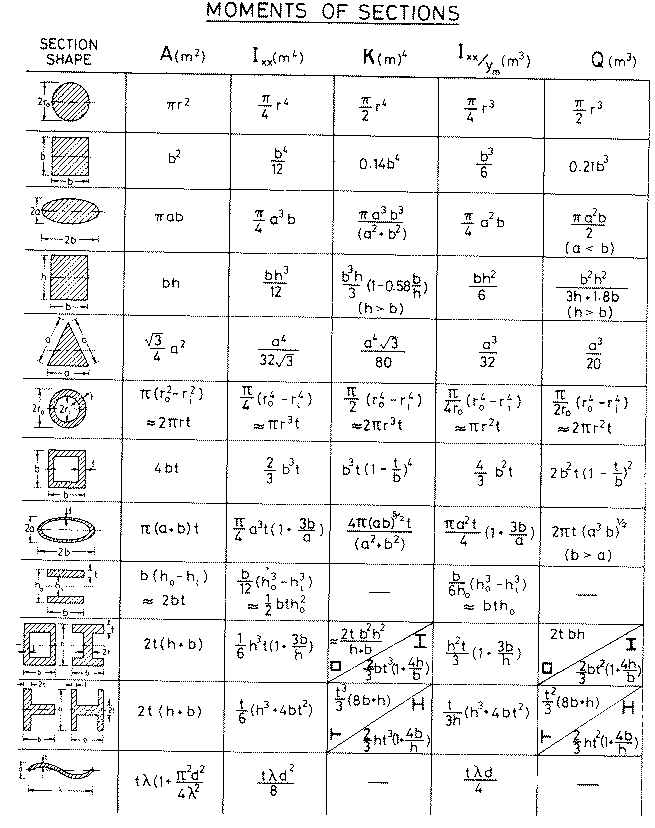 MOMENTS OF SECTIONS
SECTION SHAPE A(m²) I_xx(m⁴) K(m)⁴ I_xx/y_m(m³) Q(m³)
2r₀ πr² π/4 r⁴ π/2 r⁴ π/4 r³ π/2 r³
b b b² b⁴/12 0.14b⁴ b³/6 0.21b³
2a 2b πab π/4 a³b πa³b³/(a²+b²) π/4 a²b πa²b/2 (a < b)
h b bh bh³/12 b³h/3 (1-0.58b/h) (h > b) bh²/6 b²h²/3h+1.8b (h > b)
a a a √3/4 a² a⁴/32√3 a⁴√3/80 a³/32 a³/20
2r₀ 2rᵢ t π(r₀²-rᵢ²) ≈2πrt π/4 (r₀⁴-rᵢ⁴) ≈πr³t π/2 (r₀⁴-rᵢ⁴) ≈2πr³t π/4r₀ (r₀⁴-rᵢ⁴) ≈πr²t π/2r₀ (r₀⁴-rᵢ⁴) ≈2πr²t
b t b 4bt 2/3 b³t b³t(1-t/b)⁴ 4/3 b²t 2b²t(1-t/b)²
2a t 2b π(a+b)t π/4 a³t(1+3b/a) 4π(ab)^5/2 t/(a²+b²) πa²t/4 (1+3b/a) 2πt(a³b)^1/2 (b > a)
h₀ hᵢ t b b(h₀-hᵢ) ≈ 2bt b/12(h₀³-hᵢ³) ≈ 1/2 bth₀² — b/6h₀(h₀³-hᵢ³) ≈ bth₀ —
t h t 2t b b 2t(h+b) 1/6 h³t(1+3b/h) ≈2tb²h²/h+b 2/3 bt³(1+4h/b) h²t/3 (1+3b/h) 2tbh 2/3 bt²(1+4h/b)
2t t h 2t b b 2t(h+b) t/6(h³+4bt²) t³/3(8b+h) 2/3 ht³(1+4b/h) t/3h(h³+4bt²) t²/3(8b+h) 2/3 ht²(1+4b/h)
d λ tλ(1+π²d²/4λ² tλd²/8 — tλd/4 —